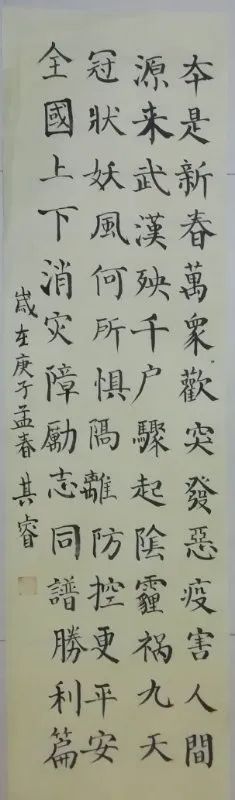 本是新春萬衆歡突發惡疫害人間
源来武漢殃千户驟起陰霾祸九天
冠狀妖風何所惧隔離防控更平安
全國上下消灾障勵志同譜勝利篇
歲在庚子孟春其睿